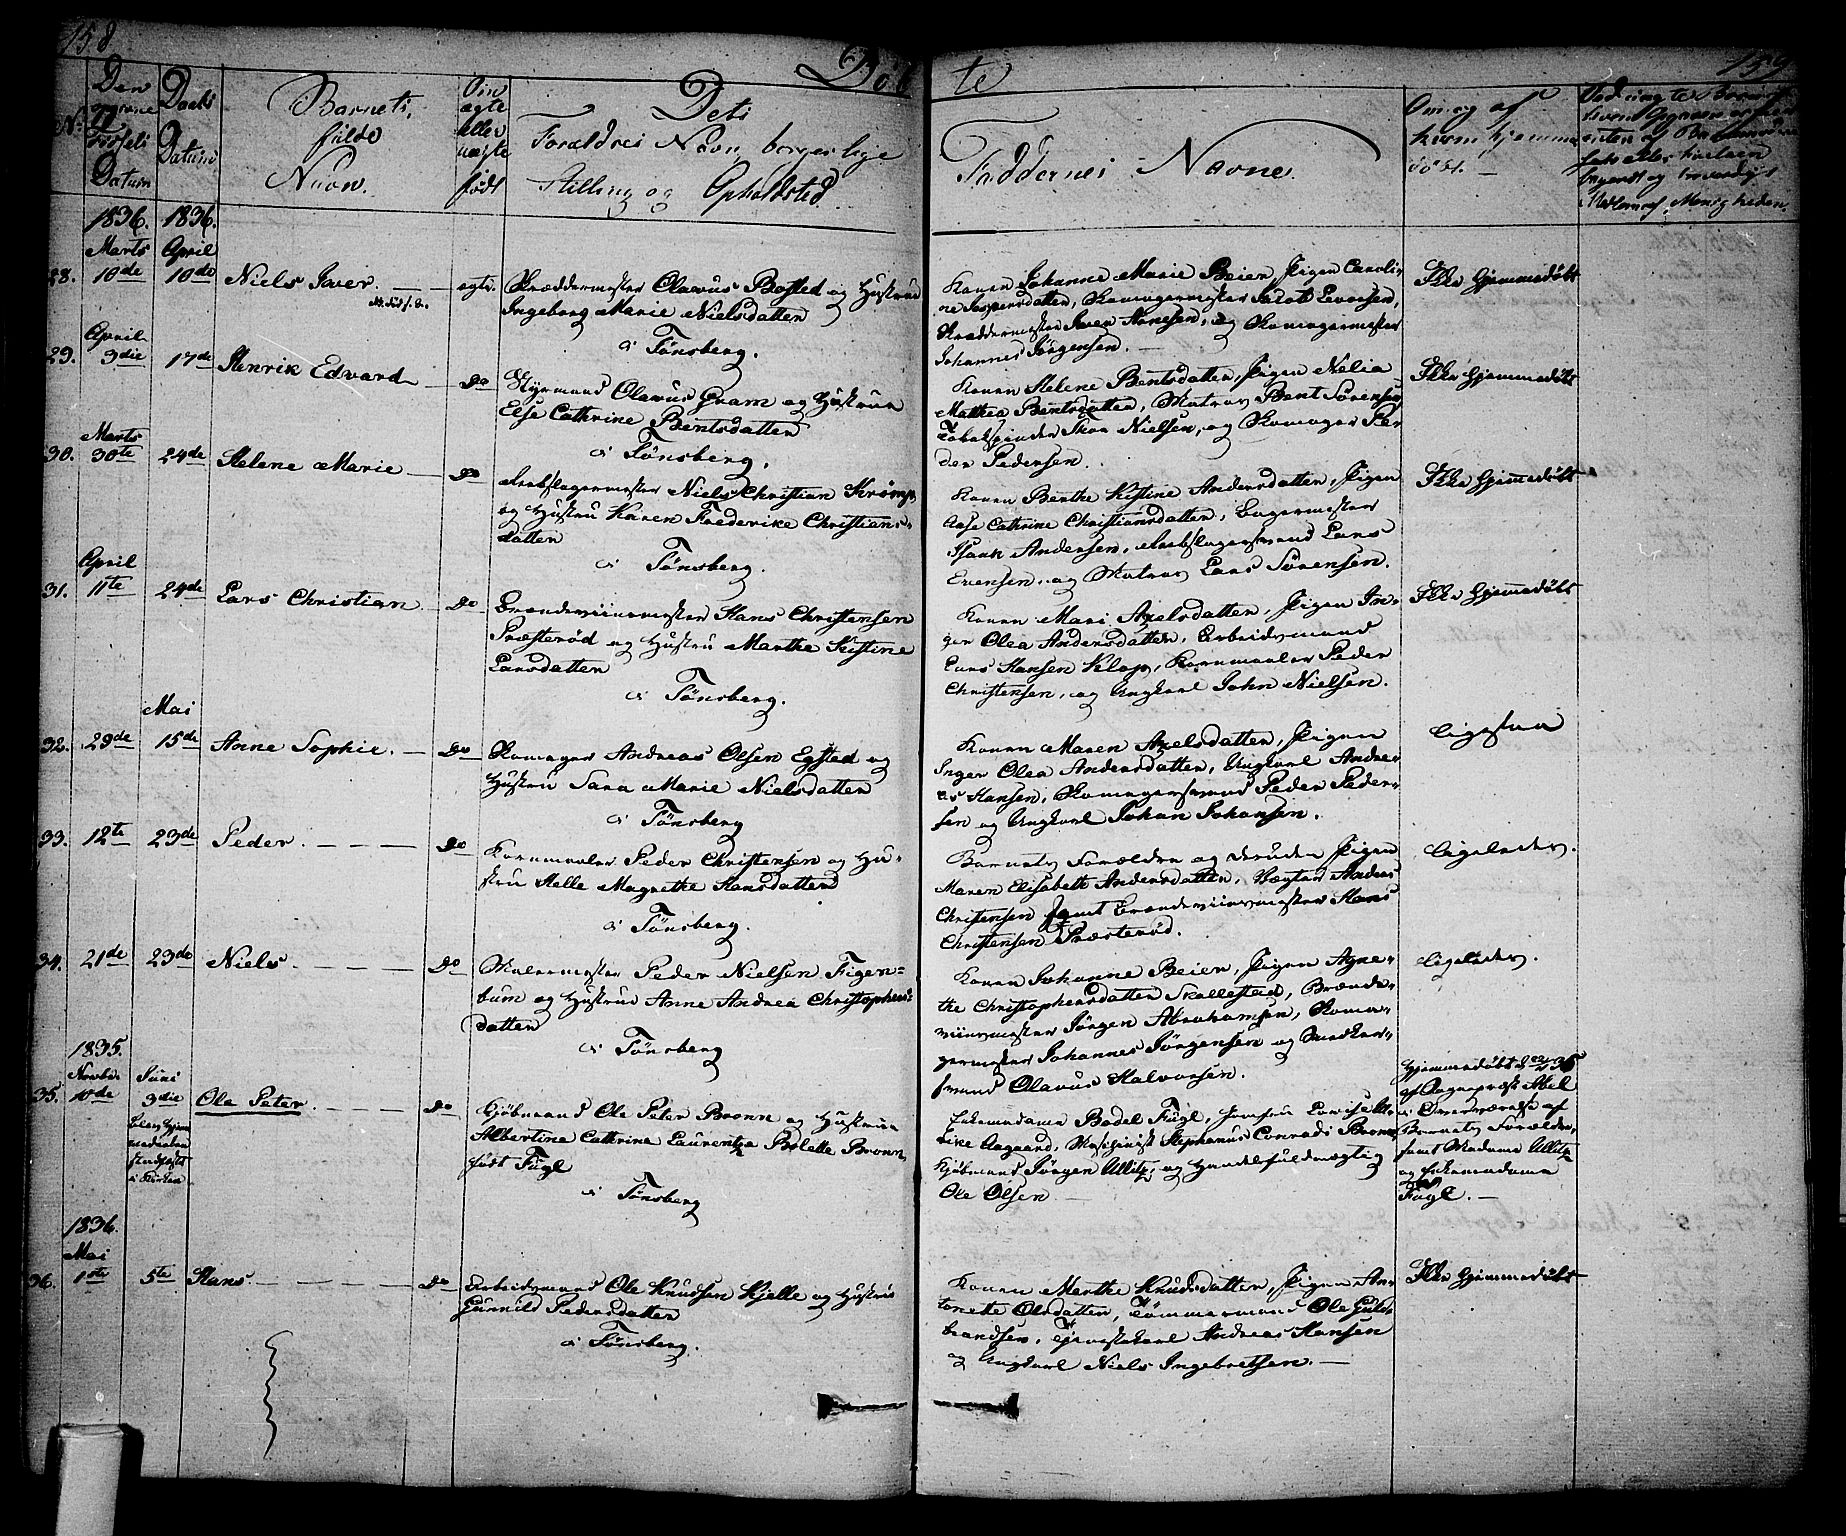 158
Døb
te
159
No.
Datum
Daabs
Datum
Barnets
fulde
Navn.
Om
ægte
eller
uægte
født
Dets
Forældres Navn, borgerlige
Stilling og Opholdsted.
Faddernes Navne.
Om og af
hvem hjemme
døbt.
1836. 1836.
Marts April
28. 10de 10de Niels Iver. ægte. Skræddermester Olavus Bogsted og Hustrue
Ingeborg Marie Nielsdatten
i Tönsberg.
Konen Johanne Marie Beien, Pigen Caroli-
ne Jespersdatten, Skomagermester Jacob Evensen,
Skræddermester Iver Hansen, og Skomagermester
Johannes Jörgensen.
Ikke Hjemmedøbt
April
29. 3die 17de Henrik Edvard do Styrmand Olavus Gram og Hustrue
Else Cathrine Bentsdatten
i Tönsberg.
Konen Helene Bentsdatten, Pigen Nelia
Mathea Bentsdatten, Matros Bent Sörensen,
Tobakspinder Nielsen, og Skomager Pe-
der Pedersen.
Ikke Hjemmedøbt
Marts
30. 30te 24de Helene Marie do Rebslagermester Niels Christian Krömp,
og Hustru Karen Frederike Christians-
datten
i Tönsberg.
Konen Berthe Kistine Andersdatten, Pigen
Aase Cathrine Christiansdatten, Bagermester
Isaak Andersen, Rebslagersvend Lars
Evensen, og Matros Lars Sörensen.
Ikke Hjemmedøbt
April
31. 11te 24de Lars Christian do Brændeviinsmester Hans Christensen
Præsteröd og Hustru Marthe Kistine
Larsdatten
i Tönsberg.
Konen Mari Axelsdatten, Pigen In-
ger Olea Andersdatten, Arbeidsmand
Lars Hansen Klop, Kornmaaler Peder
Christensen, og Ungkarl John Nielsen.
Ikke Hjemmedøbt
Mai
32. 29de 15de Anne Sophie. do Skomager Andreas Olsen Egsted og
Hustru Sara Marie Nielsdatten
i Tönsberg
Konen Maren Axelsdatten, Pigen
Inger Olea Andersdatten, Ungkarl Andre-
as Hansen, Skomagersvend Peder Peder-
sen og Ungkarl Johan Johansen.
ligesaa
33. 12te 23de Peder. do Kornmaaler Peder Christensen og Hu-
stru Helle Magrethe Hansdatten
i Tönsberg.
Barnets Forældre og desuden Pigen
Maren Elisabeth Andersdatten, Vægter Andreas
Christensen samt Brændeviinsmester Hans
Christensen Præsteröd.
ligeledes.
34. 21de 23de Niels. do Malermester Peder Nielsen Figen-
bum og Hustrue Anne Andrea Christophers-
datten
i Tönsberg
Konen Johanne Beien, Pigen Agne-
the Christophersdatten Skallestad, Brænde-
viinsmester Jörgen Abrahamsen, Skoma-
germester Johannes Jörgensen og Snedker-
svend Olavus Halvorsen.
ligeledes.
1835.
Novbr. Juni
35. 10de 3die Ole Peter. do Kjöbmand Ole Peter Bronn og Hustrue
i Kirken
Albertine Cathrine Laurentze Bolette Bronn,
født Fügl
i Tönsberg
Enkemadame Bodel Fügl, Jomfru Lovise
rike Aagaard, Stephanus Conradi Bronn,
Kjöbmand Jörgen Allitz, og Handelsfuldmægtig
Ole Olsen
Hjemmedøbt
af Sognepræst Abel
i Overværelse af
Barnets Forældre,
samt Madame Allitz
og Enkemadame
Fügl.
1836.
Mai
36. 1ste 5te Hans. do Arbeidsmand Ole Knudsen Kjelle og Hustrue
Gunnild Pedersdatten
i Tönsberg.
Konen Marthe Knudsdatten, Pigen An-
tonette Olsdatten, Tömmermand Ole Gul-
brandsen, Tjenestekarl Andreas Hansen
og Ungkarl Niels Ingebretsen.
Ikke Hjemmedøbt